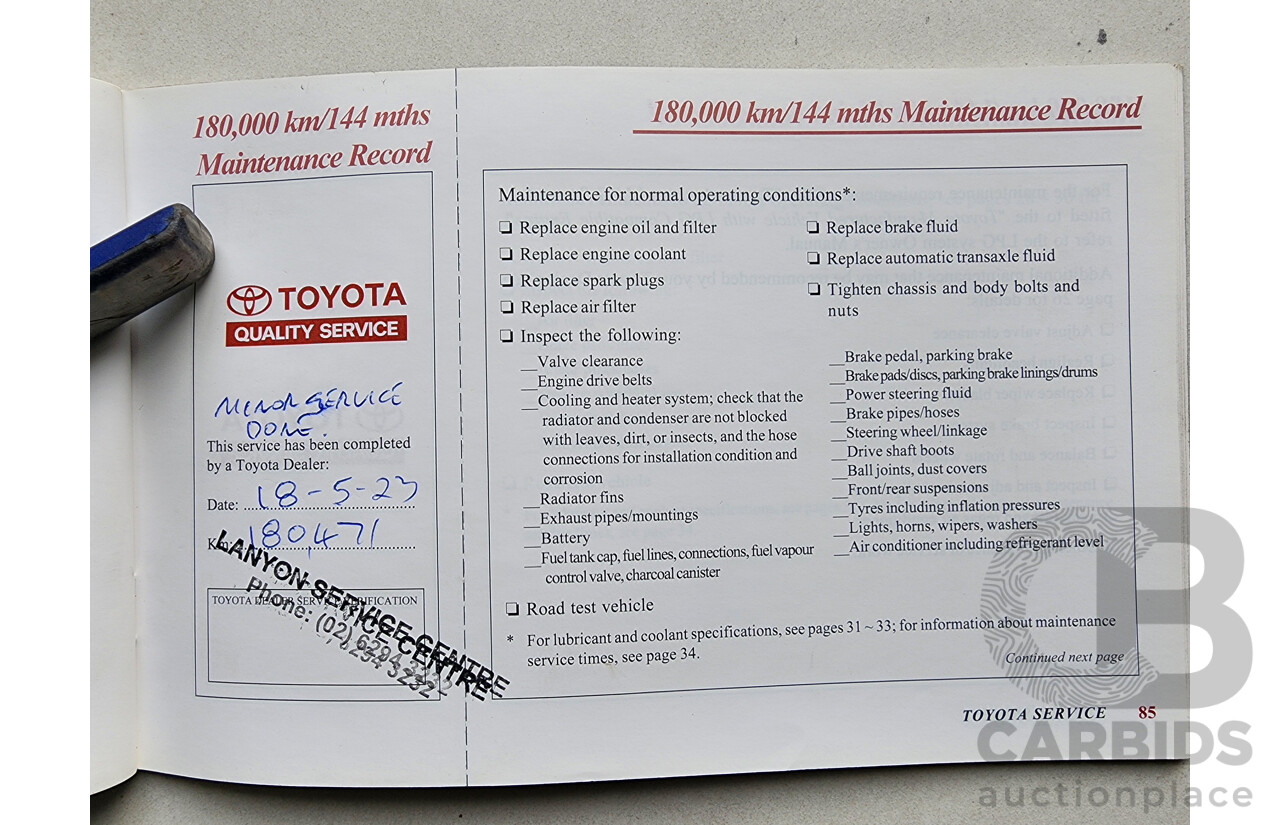 180,000 km/144 mths
Maintenance Record
TOYOTA
QUALITY SERVICE
MINOR SERVICE
DONE.
This service has been completed
by a Toyota Dealer:
Date: 18-5-23
Km: 180,471
TOYOTA DEALER SERVICE VERIFICATION
LANYON SERVICE CENTRE
Phone: (02) 6294 3232
180,000 km/144 mths Maintenance Record
Maintenance for normal operating conditions*:
❏ Replace engine oil and filter
❏ Replace engine coolant
❏ Replace spark plugs
❏ Replace air filter
❏ Replace brake fluid
❏ Replace automatic transaxle fluid
❏ Tighten chassis and body bolts and
nuts
❏ Inspect the following:
__Valve clearance
__Engine drive belts
__Cooling and heater system; check that the
radiator and condenser are not blocked
with leaves, dirt, or insects, and the hose
connections for installation condition and
corrosion
__Radiator fins
__Exhaust pipes/mountings
__Battery
__Fuel tank cap, fuel lines, connections, fuel vapour
control valve, charcoal canister
__Brake pedal, parking brake
__Brake pads/discs, parking brake linings/drums
__Power steering fluid
__Brake pipes/hoses
__Steering wheel/linkage
__Drive shaft boots
__Ball joints, dust covers
__Front/rear suspensions
__Tyres including inflation pressures
__Lights, horns, wipers, washers
__Air conditioner including refrigerant level
❏ Road test vehicle
* For lubricant and coolant specifications, see pages 31 ~ 33; for information about maintenance
service times, see page 34.
Continued next page
TOYOTA SERVICE 85
CARBIDS
auctionplace